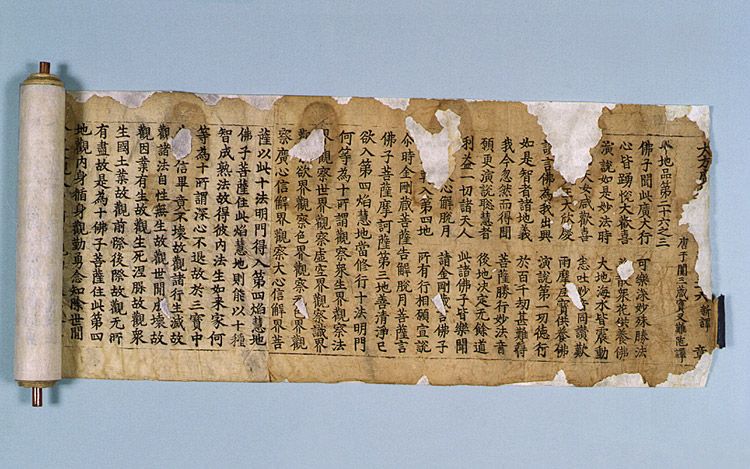 大方 六 新譯 章
地品第二十六之三 唐于闐三藏實叉難陀譯
佛子聞此廣大行 可樂深妙殊勝法
心皆踊悅大歡喜 散眾花供養佛
演說如是妙法時 大地海水皆震動
女咸歡喜 悉吐妙音同讚歎
王大欣慶 雨摩尼寶供養佛
言佛為我出興 演說第一功德行
如是智者諸地義 於百千劫甚難得
我今忽然而得聞 菩薩勝行妙法音
願更演說聰慧者 後地決定无餘道
利益一切諸天人 此諸佛子皆樂聞
心解脫月 請金剛藏言佛子
入第四地 所有行相願宣說
尒時金剛藏菩薩告解脫月菩薩言
佛子菩薩摩訶薩第三地善清淨已
欲入第四焰慧地當修行十法明門
何等為十所謂觀察眾生界觀察法
界觀察世界觀察虛空界觀察識界
觀察欲界觀察色界觀察无色界觀
察廣心信解界觀察大心信解界菩
薩以此十法明門得入第四焰慧地
佛子菩薩住此焰慧地則能以十種
智成熟法故得彼內法生如來家何
等為十所謂深心不退故於三寶中
生 信畢竟不壞故觀諸行生滅故
觀諸法自性無生故觀世間成壞故
觀因業有生故觀生死涅槃故觀眾
生國土業故觀前際後際故觀无所
有盡故是為十佛子菩薩住此第四
地觀內身循身觀勤勇念知除世間